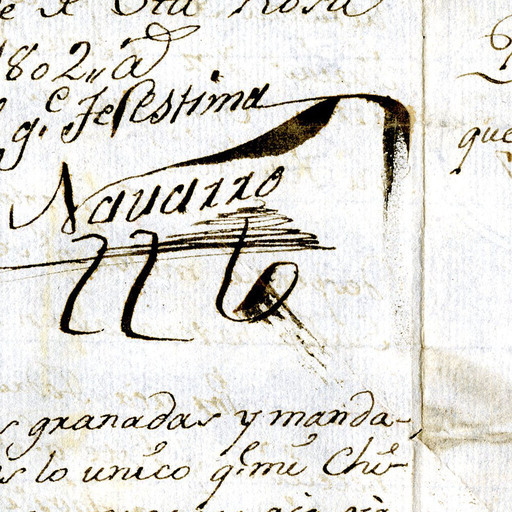 de Sta Rosa
1802,, ád
q.e Te estima
Navarro
s granadas y manda-
s lo unico q.e me Chi-
que